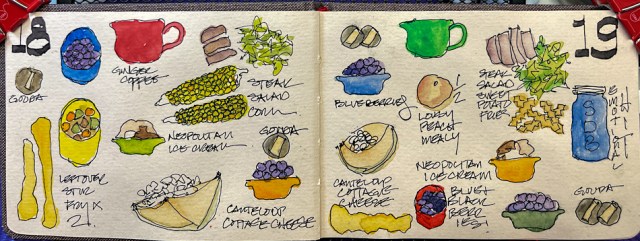 18
GINGER
COFFEE
GOUDA
STEAK
SALAD
CORN
NEOPOLITAN
ICE CREAM
GOUDA
LEFTOVER
STIR
FRY X
2!
CANTELOUP
COTTAGE CHEESE
19
BLUEBERRIES
1/2
LOUSY
PEACH
MEALY
STEAK
SALAD
SWEET
POTATO
FRIES
CANTELOUP
COTTAGE
CHEESE
NEOPOLITAN
ICE CREAM
BLUE +
BLACK
BERR
IES!
GOUDA